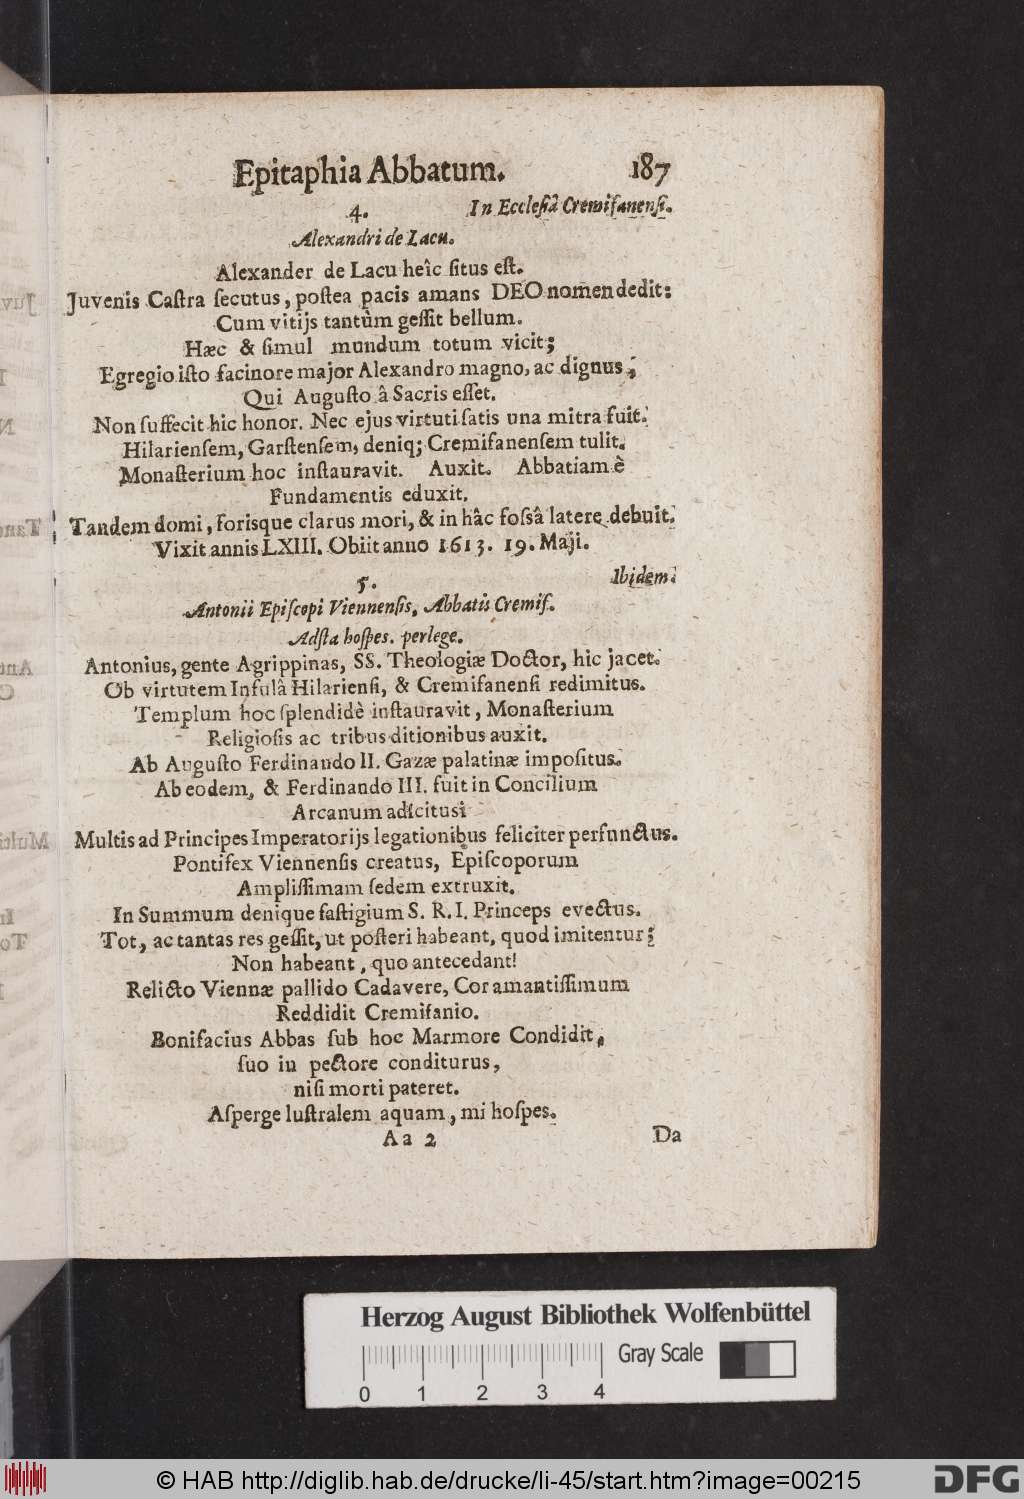 Epitaphia Abbatum. 187
4. In Ecclesiâ Cremisanensi.
Alexandri de Lacu.
Alexander de Lacu heîc situs est.
Juvenis Castra secutus, postea pacis amans DEO nomen dedit:
Cum vitijs tantùm gessit bellum.
Hæc & simul mundum totum vicit;
Egregio isto facinore major Alexandro magno, ac dignus,
Qui Augusto â Sacris esset.
Non suffecit hic honor. Nec ejus virtuti satis una mitra fuit.
Hilariensem, Garstensem, deniq; Cremisanensem tulit.
Monasterium hoc instauravit. Auxit. Abbatiam è
Fundamentis eduxit.
Tandem domi, forisque clarus mori, & in hâc fossâ latere debuit.
Vixit annis LXIII. Obiit anno 1613. 19. Maji.
5. Ibidem.
Antonii Episcopi Viennensis, Abbatis Cremis.
Adsta hospes. perlege.
Antonius, gente Agrippinas, SS. Theologiæ Doctor, hic jacet.
Ob virtutem Insulâ Hilariensi, & Cremisanensi redimitus.
Templum hoc splendidè instauravit, Monasterium
Religiosis ac tribus ditionibus auxit.
Ab Augusto Ferdinando II. Gazæ palatinæ impositus.
Ab eodem, & Ferdinando III. fuit in Concilium
Arcanum adscitus;
Multis ad Principes Imperatorijs legationibus feliciter perfunctus.
Pontifex Viennensis creatus, Episcoporum
Amplissimam sedem extruxit.
In Summum denique fastigium S. R. I. Princeps evectus.
Tot, ac tantas res gessit, ut posteri habeant, quod imitentur;
Non habeant, quo antecedant!
Relicto Viennæ pallido Cadavere, Cor amantissimum
Reddidit Cremisanio.
Bonifacius Abbas sub hoc Marmore Condidit,
suo in pectore conditurus,
nisi morti pateret.
Asperge lustralem aquam, mi hospes.
Aa 2 Da
Herzog August Bibliothek Wolfenbüttel
Gray Scale
0 1 2 3 4
© HAB http://diglib.hab.de/drucke/li-45/start.htm?image=00215
DFG